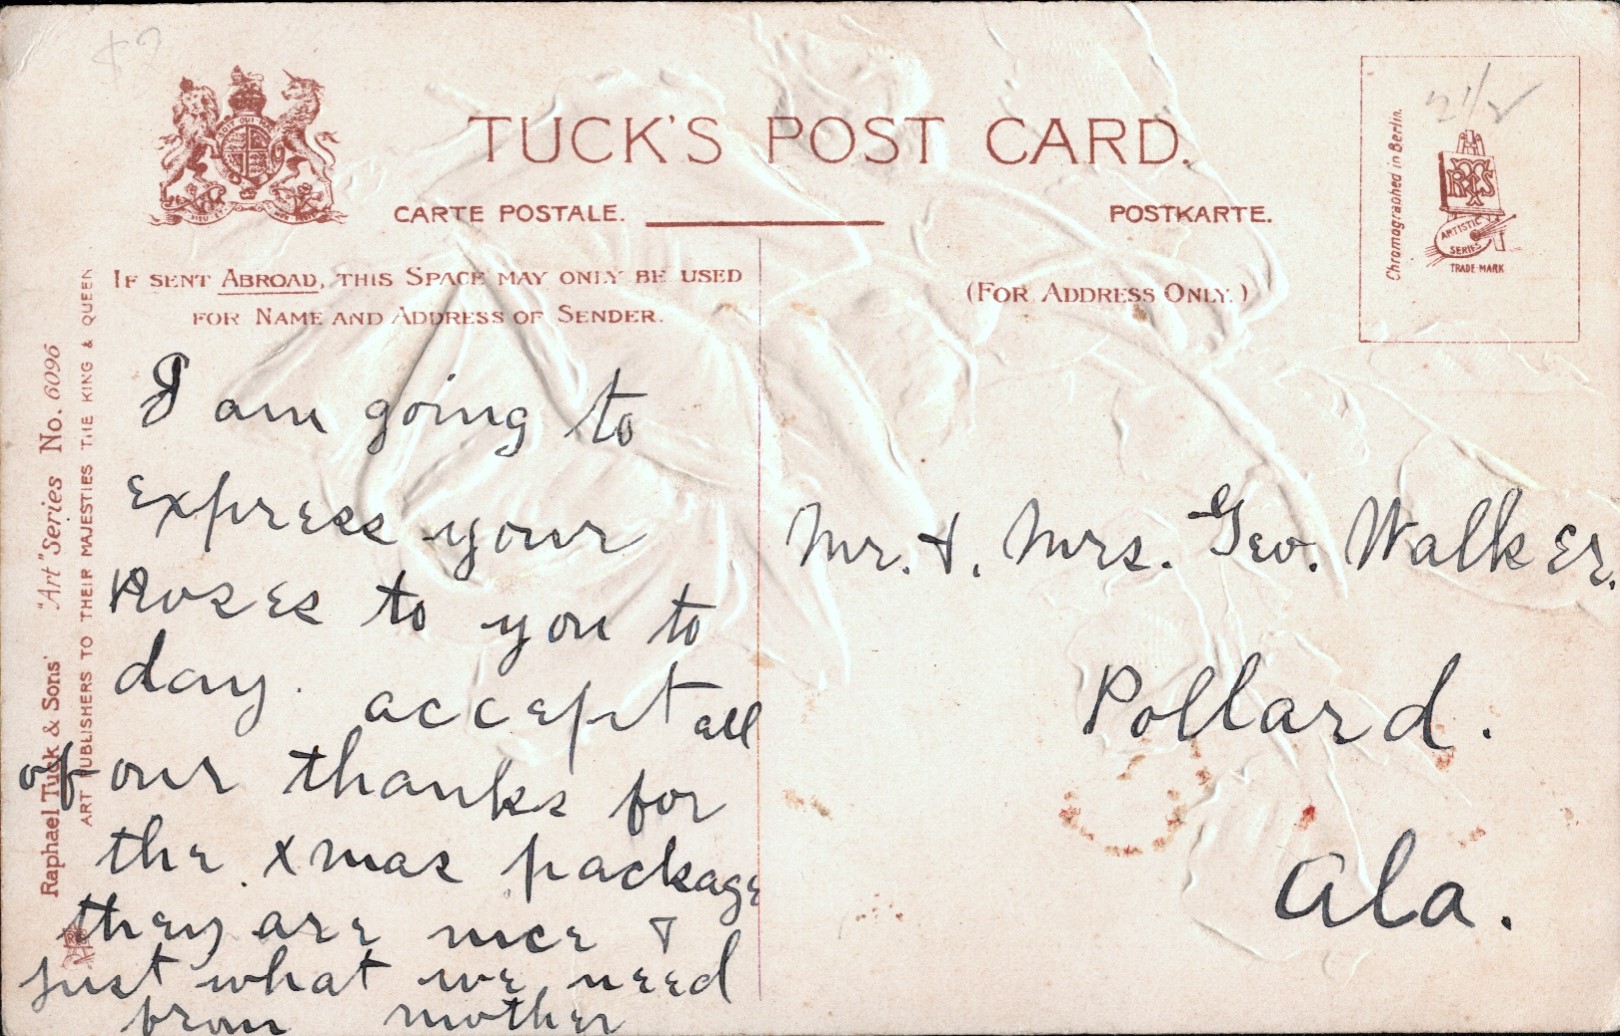 $2
TUCK'S POST CARD.
CARTE POSTALE.
POSTKARTE.
IF SENT ABROAD, THIS SPACE MAY ONLY BE USED
FOR NAME AND ADDRESS OF SENDER.
(FOR ADDRESS ONLY.)
Chromographed in Berlin.
2 1/2
RTS
ARTISTIC
SERIES
TRADE MARK
Raphael Tuck & Sons' "Art" Series No. 6096
ART PUBLISHERS TO THEIR MAJESTIES THE KING & QUEEN.
I am going to
express your
Roses to you to
day. accept all
of our thanks for
the xmas package
they are nice &
just what we need
from mother
Mr. &. Mrs. Geo. Walker.
Pollard.
Ala.